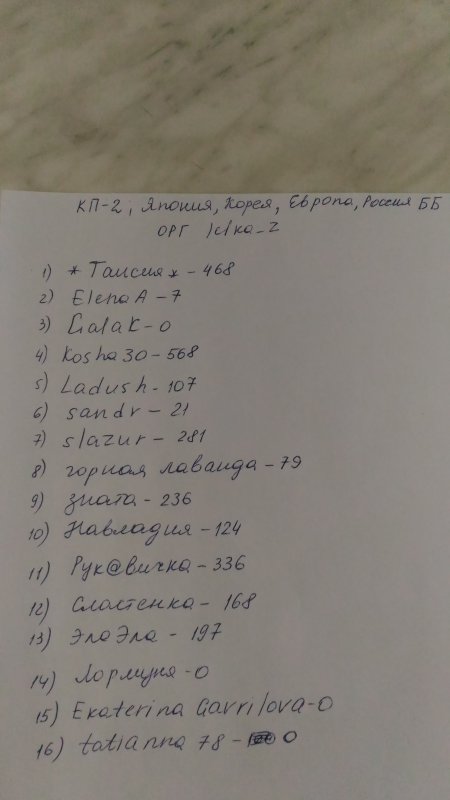 КП-2; Япония, Корея, Европа, Россия ББ
ОРГ
1) *Таисия* - 468
2) Elena A - 7
3) GalaK - 0
4) Kosha30 - 568
5) Ladush - 107
6) sandr - 21
7) slazur - 281
8) горная лаванда - 79
9) злата - 236
10) Навладия - 124
11) Рук@вичка - 336
12) Сластенка - 168
13) ЭлаЭла - 197
14) - 0
15) Ekaterina Gavrilova - 0
16) tatianna 78 - 0